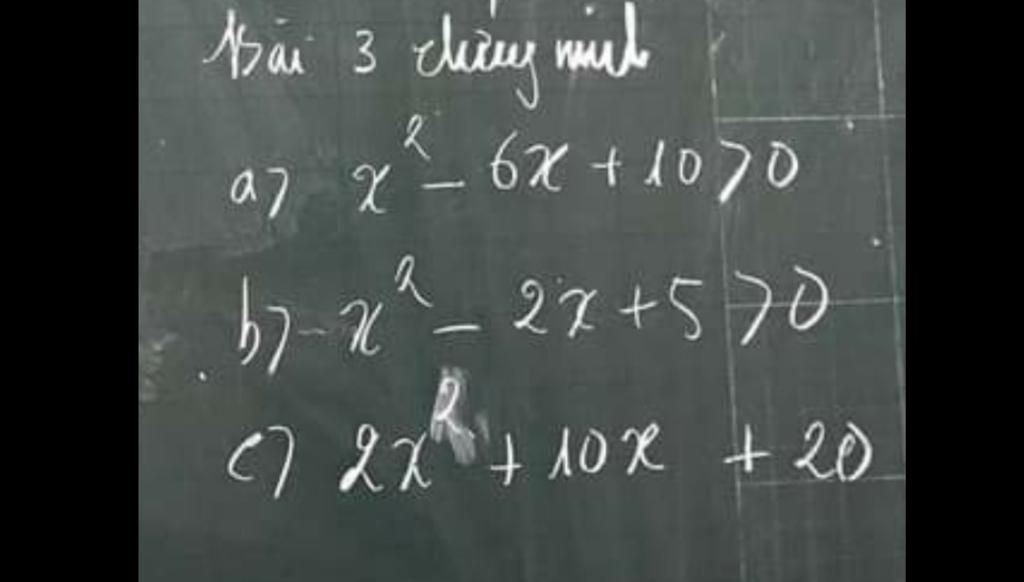 Bài 3 chứng minh
a) x² - 6x + 10 > 0
b) -x² - 2x + 5 > 0
c) 2x² + 10x + 20